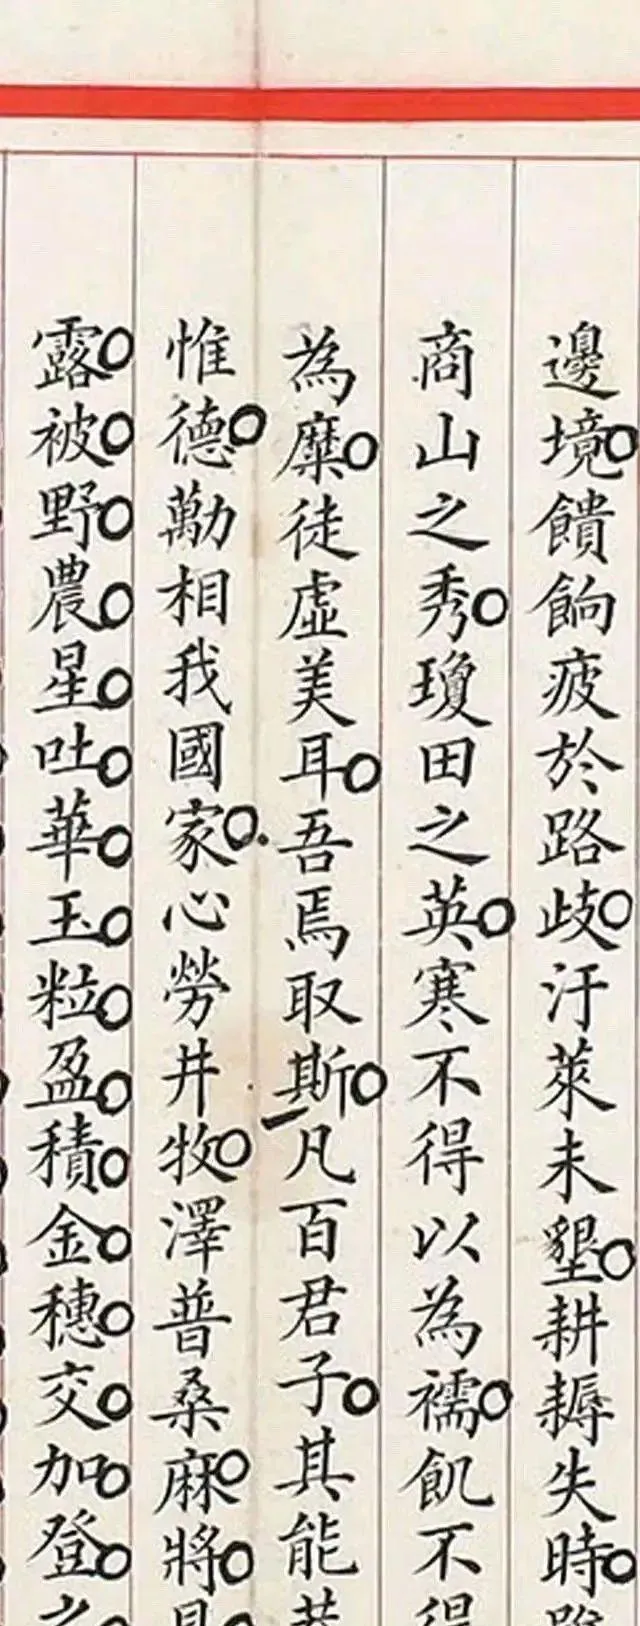 邊境饋餉疲於路歧汙萊未墾耕耨失時
商山之秀瓊田之英寒不得以為襦飢不得
為糜徒虛美耳吾焉取斯凡百君子其能
惟德勱相我國家心勞井牧澤普桑麻將見
露被野農星吐華玉粒盈積金穗交加登之